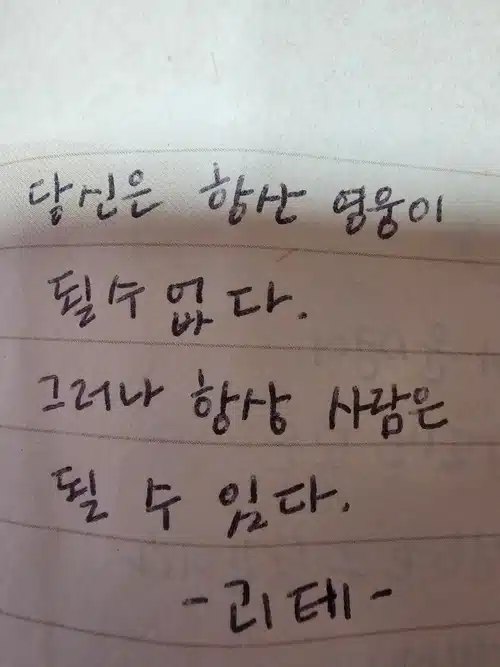 당신은 항상 영웅이
될수 없다.
그러나 항상 사람은
될 수 있다.
-괴테-